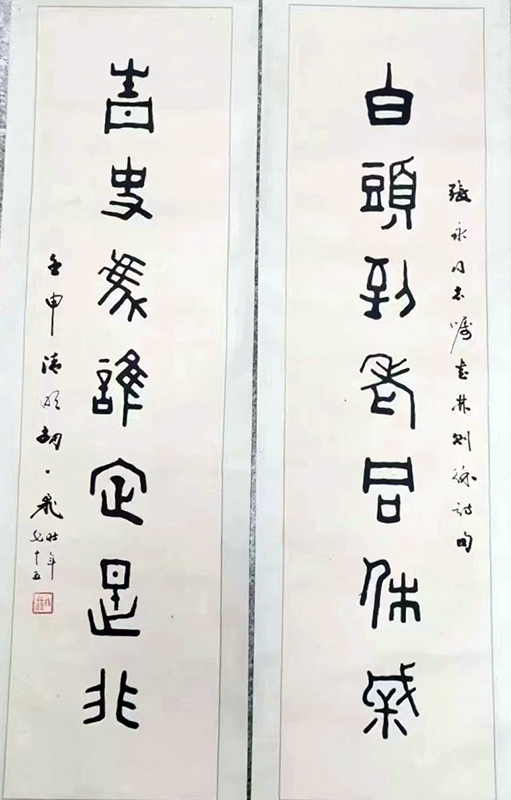 張永同志囑書林則徐詩句
白頭到老同休戚
青史為誰定是非
壬申清明
飛時年
七十五